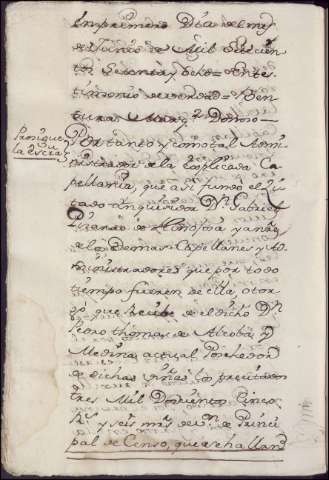 en primero Dia del mes
de Junio de Mil Setecien
tos Sesenta y ocho = en tes
timonio de verdad = Ven
tura
Prosigue
la escra
Por tanto y como tal Admi
nistrador de la explicada Ca
pellania, que asi fundó el Ci
tado Inquisidor Dn. Gabriel
de Hinojosa y a nre.
de los Demas Capellanes y Ad
ministradores que por todo
tiempo fueren de ella otor
gó que recive de el dicho Dn.
Pedro Thomas de Alcoba y
Medina actual Posehedor
de dichas fincas los precitados
tres Mil Doscientos Cinco
Rs. y seis mrs. de vn. de Princi
pal de Censo, que se halland